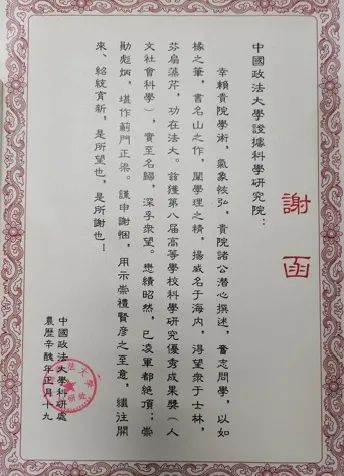 謝函
中國政法大學證據科學研究院：
幸賴貴院學術，氣象恢弘，貴院諸公潛心撰述，奮志問學，以如
椽之筆，書名山之作，闡學理之精，揚威名于海内，得望衆于士林，
芬扃藻芹，功在法大。兹獲第八届高等學校科學研究優秀成果獎（人
文社會科學），實至名歸，深孚衆望。懋績昭然，已凌軍都絶頂；崇
勛彪炳，堪作薊門正梁。謹申謝悃，用示崇禮賢彦之至意，繼往開
來、紹統育新，是所望也，是所謝也！
中國政法大學科研處
農歷辛醜年正月十九